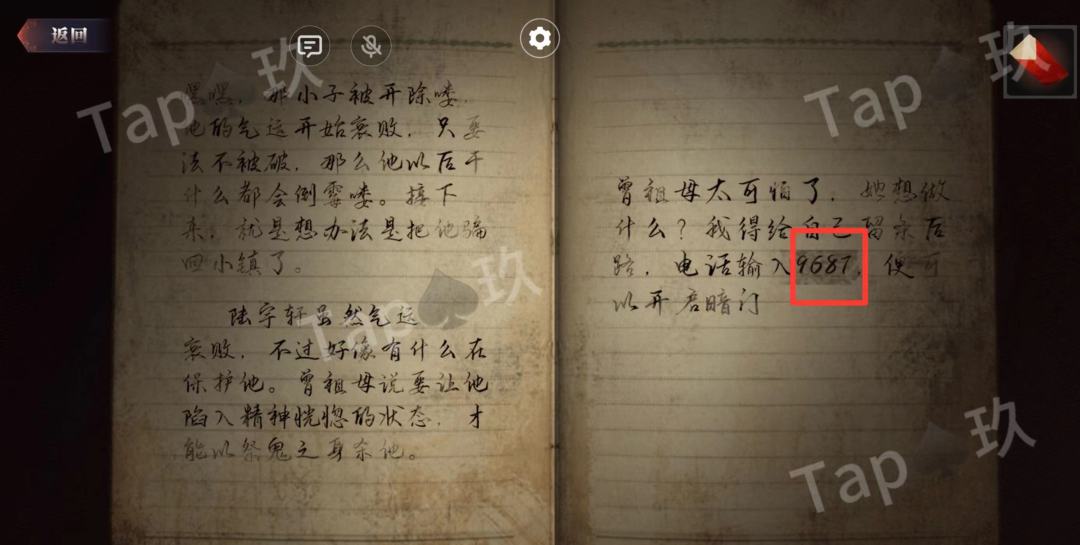 返回
嘿嘿，那小子被开除喽，
他的气运开始衰败，只要
法不被破，那么他以后干
什么都会倒霉喽。接下
来，就是想办法是把他骗
回小镇了。
陆宇轩虽然气运
衰败，不过好像有什么在
保护他。曾祖母说要让他
陷入精神恍惚的状态，才
能以祭鬼之身杀他。
曾祖母太可怕了，她想做
什么？我得给自己留条后
路，电话输入9687，便可
以开启暗门
Tap 玖
Tap 玖
Tap 玖
Tap 玖